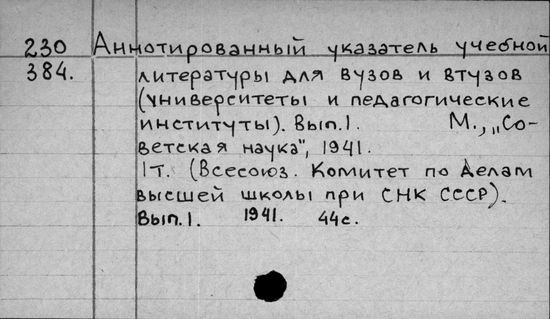 230 Аннотированный указатель учебной
384. литературы для вузов и втузов
(университеты и педагогические
институты). Вып.1. М., „Со-
ветская наука", 1941.
1т. (Всесоюз. Комитет по делам
высшей школы при СНК СССР).
Вып.1. 1941. 44с.